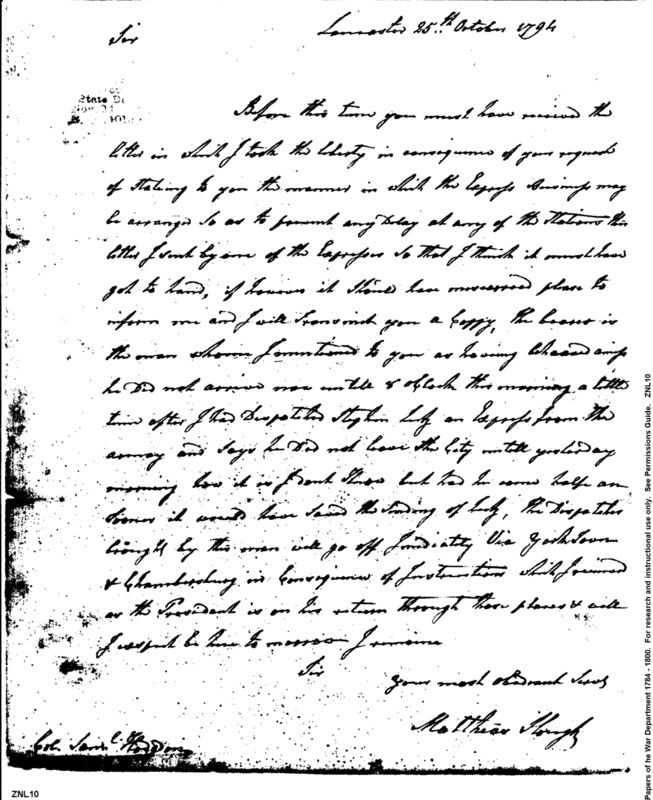 Lancaster 25th October 1794
Sir
State D
Before this time you must have received the
letter in which I took the liberty in consequence of your request
of Stateing to you the manner in which the Express Business may
be arranged so as to prevent any Delay at any of the Stations this
letter I sent by one of the Expresses so that I think it must have
got to hand, if however it should have miscarred please to
inform me and I will transmit you a Coppy, the bearer is
the man whome I mentioned to you as having behaved amiss
he Did not arrive untill 8 oClock this morning a little
time after I had Dispatched Stephen Lutz an Express from the
army and says he Did not leave the City untill yesterday
morning how it is I dont know but had he come half an
sooner it would have saved the sending of Lutz, the Dispatches
brought by this man will go off Imediately Via York Town
& Chambersburg in Consequence of Instructions which I received
as the President is on his return through those places & will
I expect be here to morrow I remaine
Sir
your most obedeant Servt
Matthias Slough
Col. Saml. Hodgdon
ZNL10
Papers of he War Department 1784 - 1800. For research and instructional use only. See Permissions Guide. ZNL10